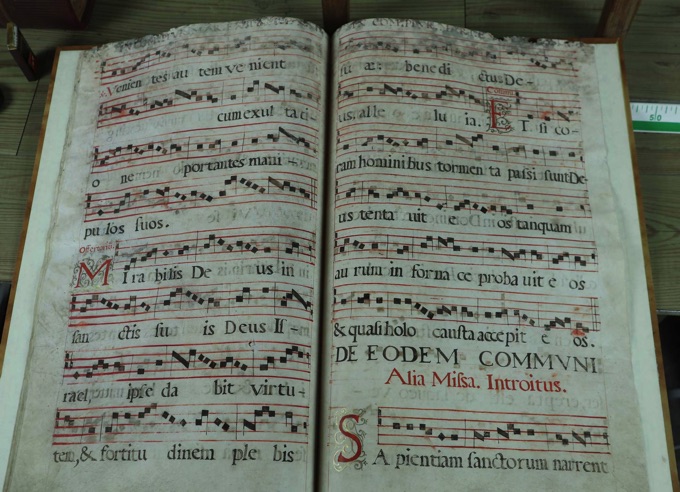 Venien tes au tem ve nient
cum exul ta ti-
o ne portantes mani -
pu los ſuos.
M Ira bilis De us in
ſan ctis ſu is Deus Iſ -
rael, ipſe da bit virtu-
tem, & fortitu dinem ple bis
bene di ctus De-
us. alle lu ia. E T ſi co-
ram homini bus tormen ta paſſi ſunt De-
us tenta uit e os tanquam
au rum in forna ce proba uit e os
& quaſi holo cauſta accepit e os.
DE EODEM COMMVNI
Alia Miſſa. Introitus.
S A pientiam ſanctorum narrent
50